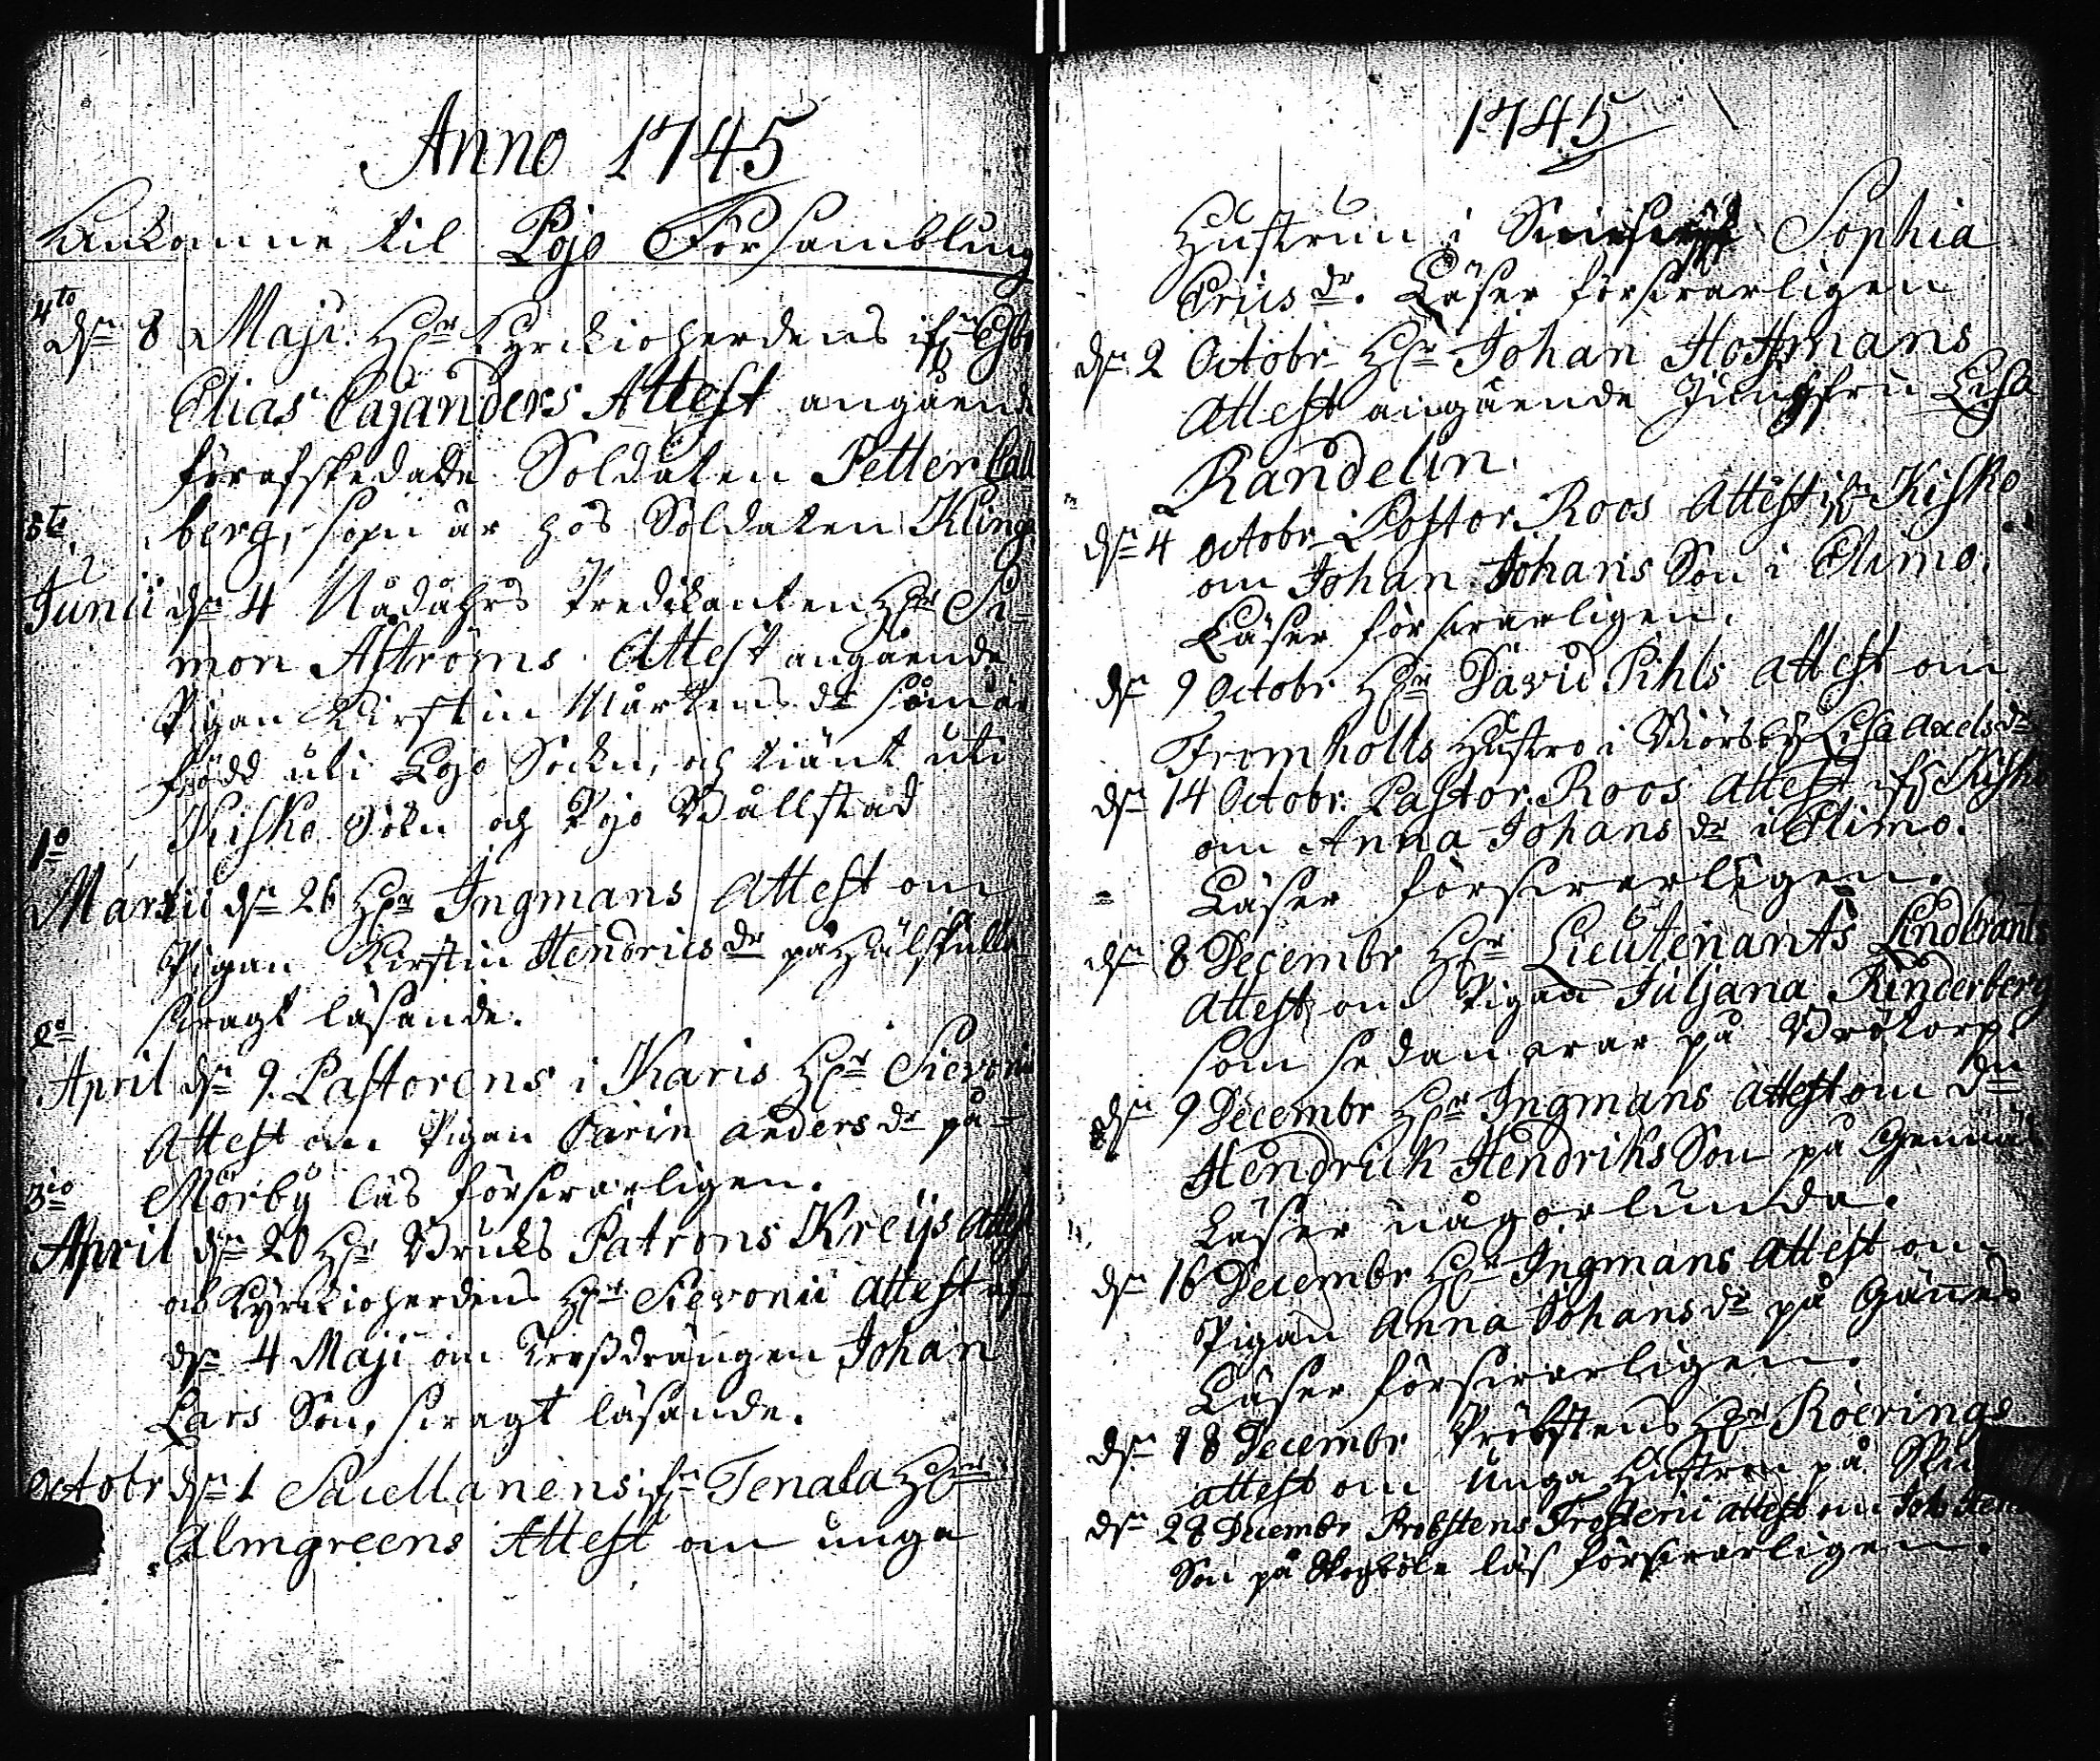 Anno 1745
Ankomne til Pojo Församblung
4to
dn 8 Maji. Hr Kyrckioherdens ifrn
Elias Cajanders Attest angående
förafskedade Soldaten Petter Call
berg, som är hos Soldaten Kling
5to
Junii dn 4 Nådåhrs Predikanten Hr Si-
mon Åströms Attest angående
Pigan Kirstin Mårtens dr som är
född uti Lojo Sockn, och tiänt uti
Kisko Sokn och Pojo Wållstad
1o
Martii dn 26 Hr Ingmans Attest om
Pigan Kirstin Hendrics dr på
svagt läsande.
2o
April dn 9. Pastorens i Karis Hr Sievonii
Attest om Pigan Carin anders dr på
Mörby läs försvarligen.
3io
April dn 20 Hr Bruks Patrons Kreijs Attest
och Kyrckioherdens Hr Sievonii Attest af
dn 4 Maji om drängen Johan
Lars Son, svagt läsande.
Octobr dn 1 Sacellanens ifrn Tenala Hr
Almgreens Attest om unga
1745
Hustrun i Sophia
Eriis dr. Läser försvarligen
dn 2 Octobr Hr Johan Hoffmans
Attest angående Jungfru Lisa
Randelin.
dn 4 Octobr Pastor Roos Attest ifrn Kisko
om Johan Johans Son i Elimo.
Läser försvarligen.
dn 9 Octobr Hr David Pihls attest om
Fromholts Hustro i Biörsby Lisa Axels dr
dn 14 Octobr. Pastor Roos Attest ifrn Kisko
om Anna Johans dr i Elimo.
Läser försvarligen.
dn 8 Decembr Hr Lieutenants Lindkrants
Attest om Pigan Juljana Rinderberg
som sedan war på Brötorp.
dn 9 Decembr Hr Ingmans Attest om Dn
Hendrick Hendriks Son på
Läser någorlunda.
dn 16 Decembr Hr Ingmans Attest om
Pigan Anna Johans dr på
Läser försvarligen.
dn 18 Decembr Pröbstens Hr Röerings
attest om unga Hustrun på
dn 28 Decembr Probstens Frosterii attest om Joh Hen
Son på Skogböle läs försvarligen.